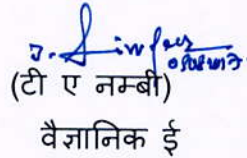 (टी ए नम्बी)
वैज्ञानिक ई